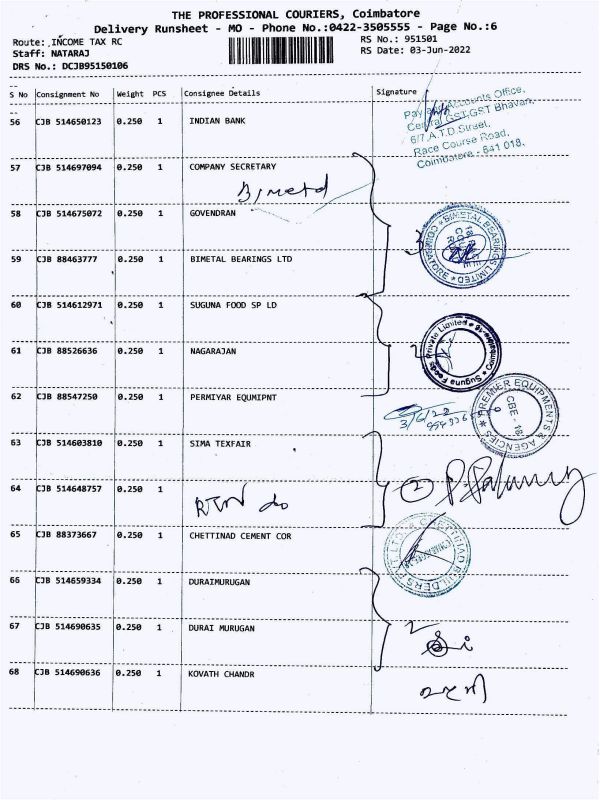 THE PROFESSIONAL COURIERS, Coimbatore
Delivery Runsheet - MO - Phone No.:0422-3505555 - Page No.:6
Route: INCOME TAX RC
RS No.: 951501
Staff: NATARAJ
RS Date: 03-Jun-2022
DRS No.: DCJB95150106
S No Consignment No Weight PCS Consignee Details Signature
56 CJB 514650123 0.250 1 INDIAN BANK
Pay and Accounts Office,
Central GST, GST Bhavan,
6/7, A.T.D. Street,
Race Course Road,
Coimbatore - 641 018.
57 CJB 514697094 0.250 1 COMPANY SECRETARY
Bimetal
58 CJB 514675072 0.250 1 GOVENDRAN
3
BIMETAL BEARINGS LIMITED
COIMBATORE
59 CJB 88463777 0.250 1 BIMETAL BEARINGS LTD
60 CJB 514612971 0.250 1 SUGUNA FOOD SP LD
61 CJB 88526636 0.250 1 NAGARAJAN
2
Suguna Foods Private Limited
62 CJB 88547250 0.250 1 PERMIYAR EQUMIPNT
3/6/22
PREMIER EQUIPMENTS & AGENCIES
CBE - 18
63 CJB 514603810 0.250 1 SIMA TEXFAIR
64 CJB 514648757 0.250 1
2
65 CJB 88373667 0.250 1 CHETTINAD CEMENT COR
66 CJB 514659334 0.250 1 DURAIMURUGAN
67 CJB 514690635 0.250 1 DURAI MURUGAN
2
68 CJB 514690636 0.250 1 KOVATH CHANDR